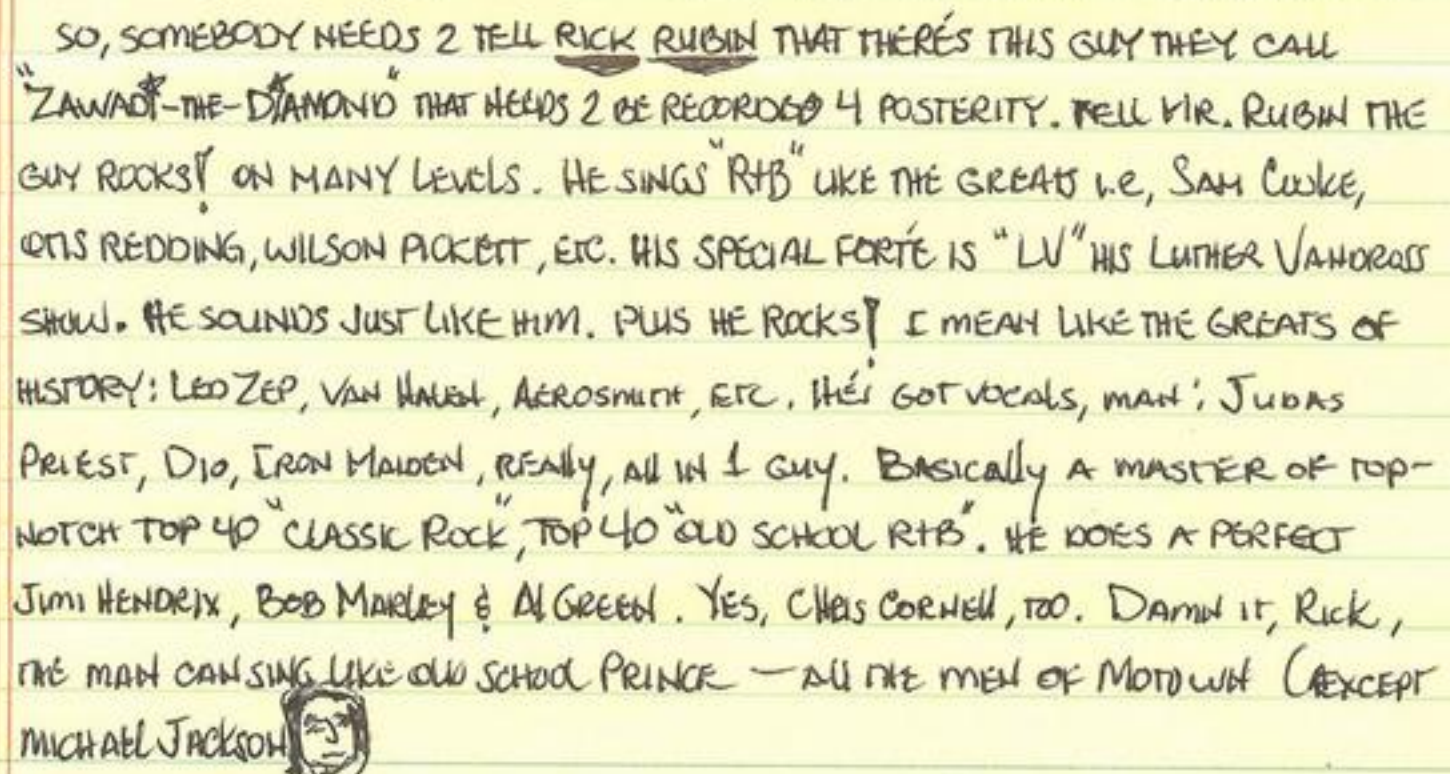 SO, SOMEBODY NEEDS 2 TELL RICK RUBIN THAT THERE'S THIS GUY THEY CALL
"ZAWADI-THE-DIAMOND" THAT NEEDS 2 BE RECORDED 4 POSTERITY. TELL MR. RUBIN THE
GUY ROCKS! ON MANY LEVELS. HE SINGS "R+B" LIKE THE GREATS i.e, SAM COOKE,
OTIS REDDING, WILSON PICKETT, ETC. HIS SPECIAL FORTÉ IS "LV" HIS LUTHER VANDROSS
SHOW. HE SOUNDS JUST LIKE HIM. PLUS HE ROCKS! I MEAN LIKE THE GREATS OF
HISTORY: LED ZEP, VAN HALEN, AEROSMITH, ETC. HE'S GOT VOCALS, MAN; JUDAS
PRIEST, DIO, IRON MAIDEN, REALLY, ALL IN 1 GUY. BASICALLY A MASTER OF TOP-
NOTCH TOP 40 "CLASSIC ROCK", TOP 40 "OLD SCHOOL R+B". HE DOES A PERFECT
JIMI HENDRIX, BOB MARLEY & AL GREEN. YES, CHRIS CORNELL, TOO. DAMN IT, RICK,
THE MAN CAN SING LIKE OLD SCHOOL PRINCE — ALL THE MEN OF MOTOWN (EXCEPT
MICHAEL JACKSON